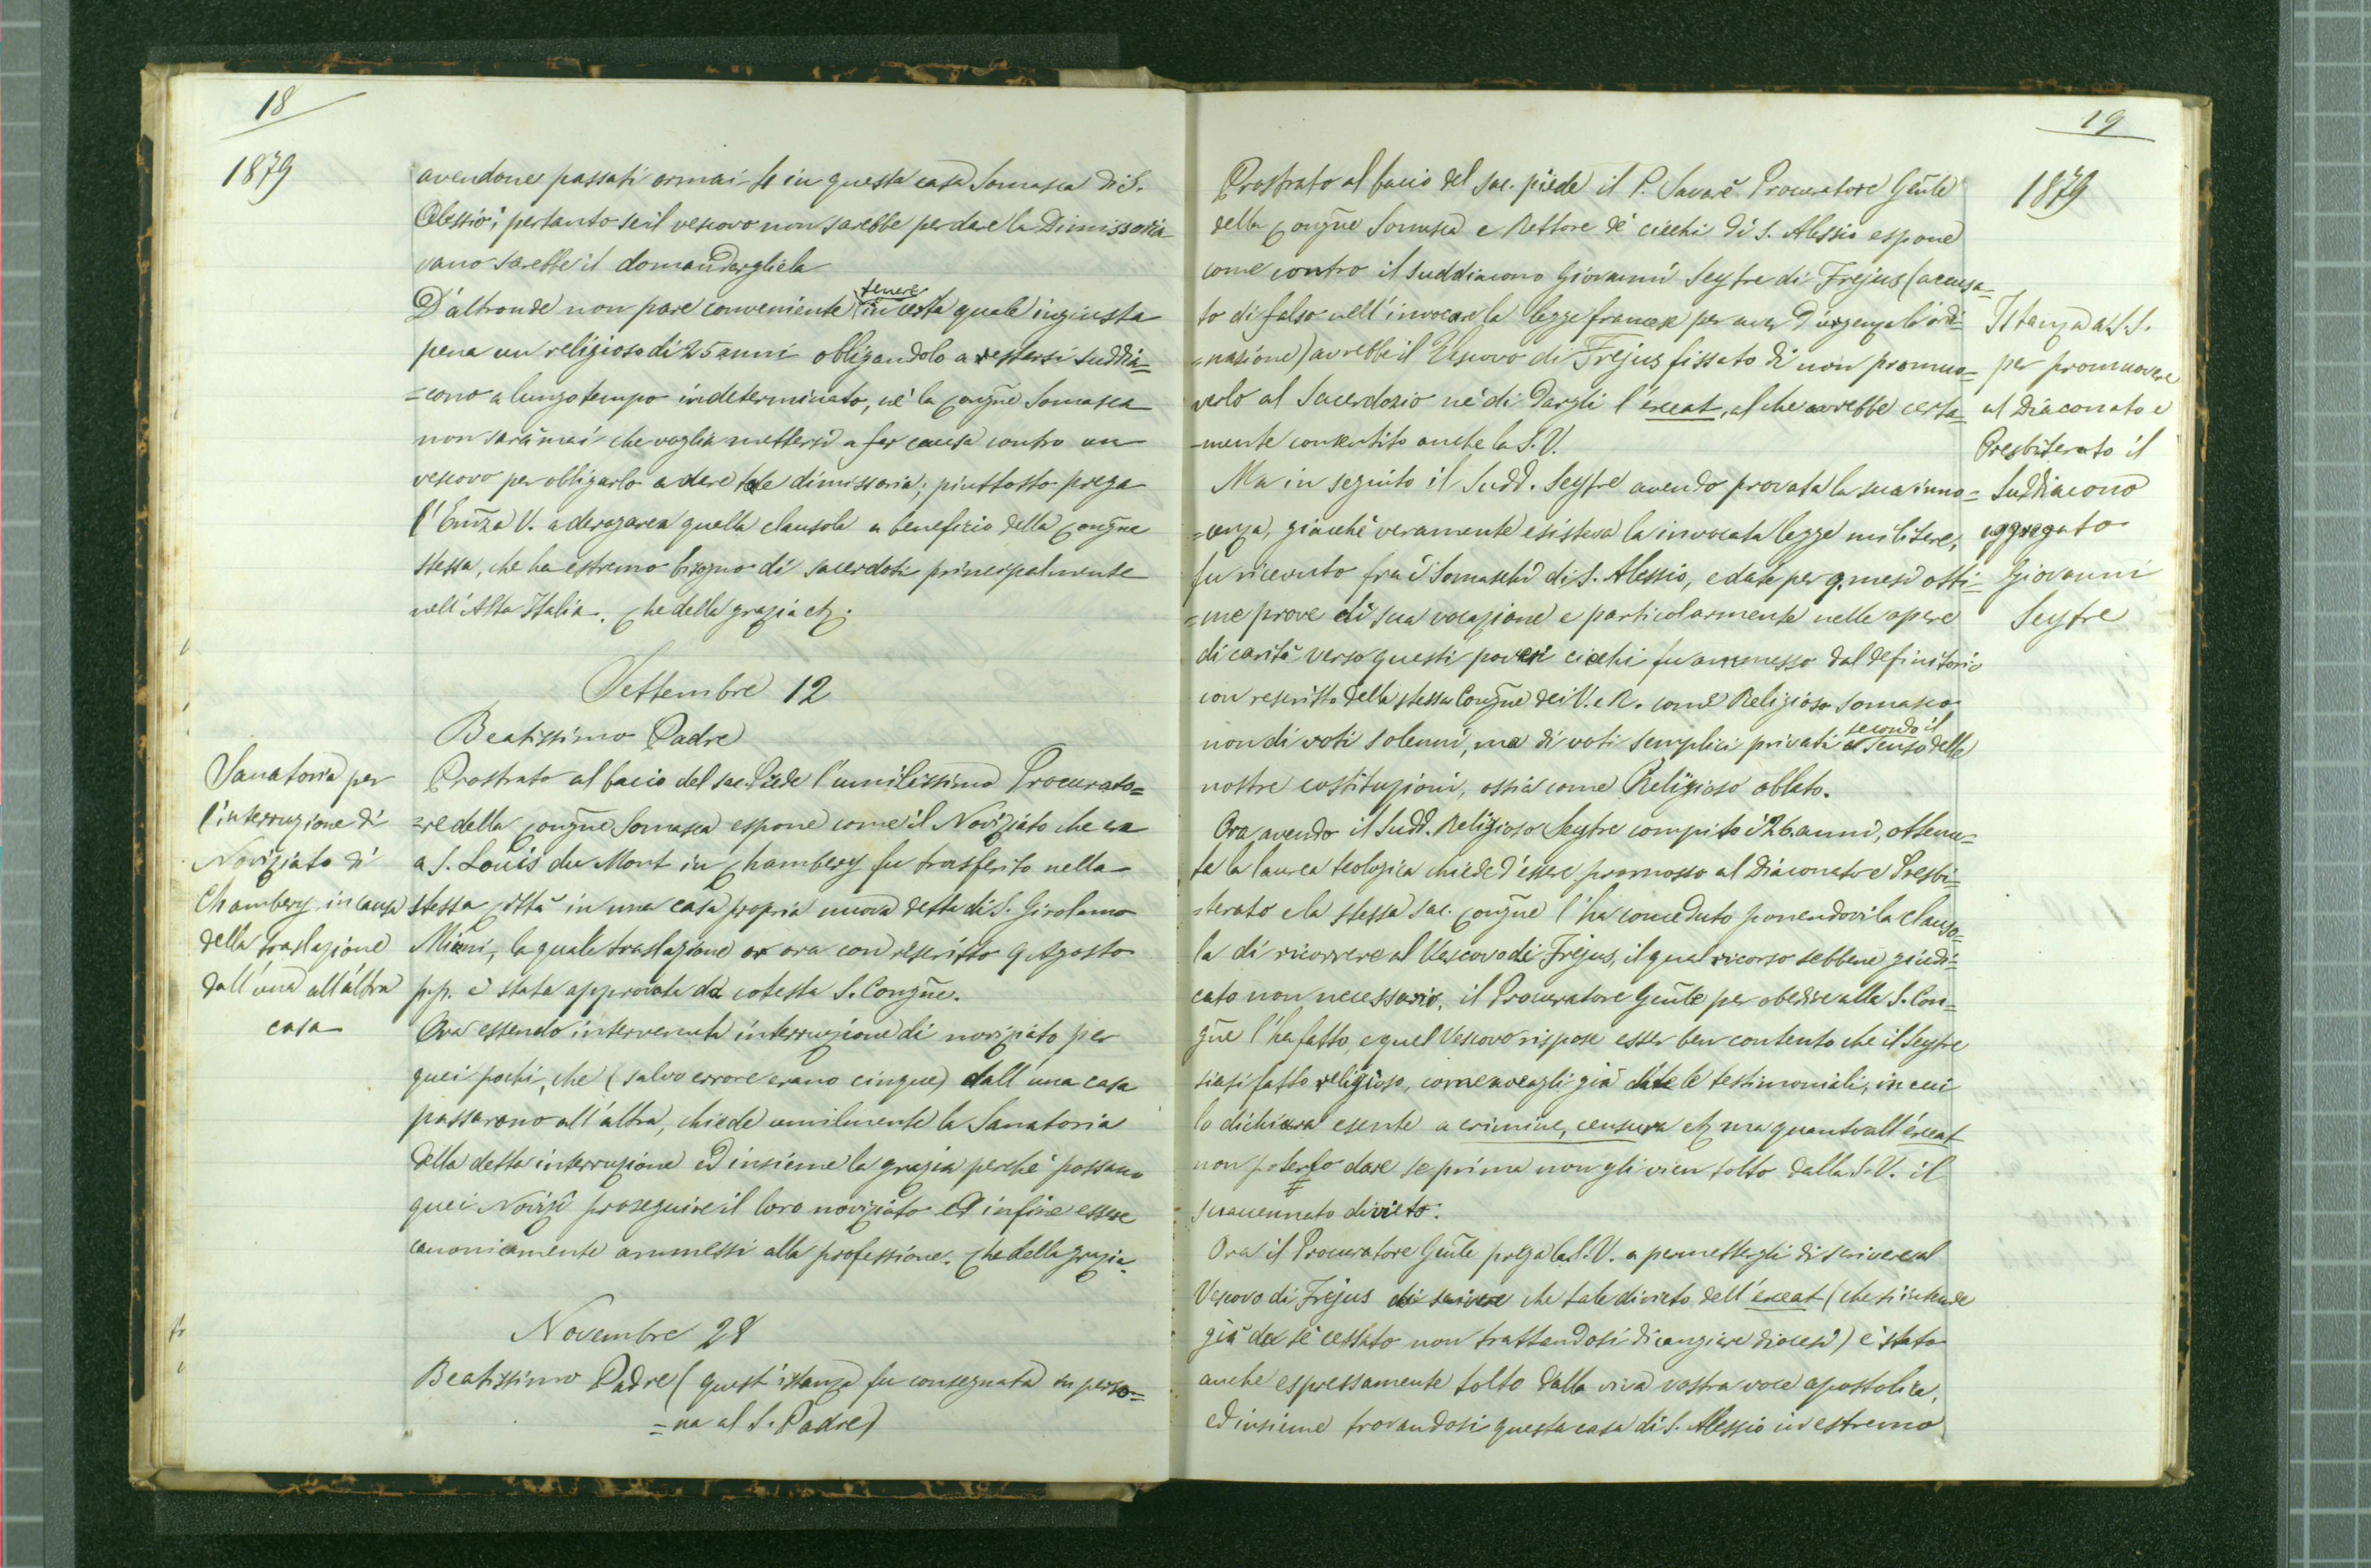 18
1879
avendone passati ormai 4 in questa casa Somasca di S.
Alessio; pertanto se il vescovo non sarebbe per dare la Dimissoria
vano sarebbe il domandargliela
D'altronde non pare conveniente tenere in certa quale ingiusta
pena un religioso di 25 anni obligandolo a restarsi suddia=
=cono a lungo tempo indeterminato, nè la Congñe Somasca
non sarà mai che voglia mettersi a far causa contro un
vescovo per obligarlo a dare tale dimissoria; piuttosto prega
l'Emza V. a derogare a quella clausola a benefizio della Congñe
stessa, che ha estremo bisogno di sacerdoti principalmente
nell'Alta Italia. Che della grazia etc.
Settembre 12
Beatissimo Padre
Sanatoria per
l'interruzione di
Noviziato di
Chambery in causa
della traslazione
dall'una all'altra
casa
Prostrato al bacio del sac. Piede l'umilissimo Procurato=
=re della Congñe Somasca espone come il Noviziato che era
a S. Louis du Mont in Chambery fu trasferito nella
stessa città in una casa propria nuova detta di S. Girolamo
Miani, la quale traslazione or ora con rescritto 9 Agosto
p.p. è stata approvata da cotesta S. Congñe.
Ora essendo intervenuta interruzione di noviziato per
quei pochi, che (salvo errore erano cinque) dall'una casa
passarono all'altra, chiede umilmente la Sanatoria
della detta interruzione ed insieme la grazia perchè possano
quei Novizi proseguire il loro noviziato ed infine essere
canonicamente ammessi alla professione. Che della grazia.
Novembre 28
Beatissimo Padre (quest'istanza fu consegnata in perso=
=na al S. Padre)
19
1879
Prostrato al bacio del sac. piede il P. Savarè Procuratore Gñle
della Congñe Somasca e Rettore de' ciechi di S. Alessio espone
come contro il suddiacono Giovanni Seytre di Frejus (accusa=
to di falso nell'invocare la legge francese per aver d'urgenza l'ordi=
=nazione) avrebbe il Vescovo di Frejus fissato di non promuo=
verlo al Sacerdozio nè di dargli l'exeat, al che avrebbe certa=
=mente consentito anche la S.V.
Ma in seguito il Sudd. Seytre avendo provata la sua inno=
=cenza, giacchè veramente esisteva la invocata legge militare,
fu ricevuto fra i Somaschi di S. Alessio, e date per 9. mesi otti=
=me prove di sua vocazione e particolarmente nelle opere
di carità verso questi poveri ciechi fu ammesso dal definitorio
con rescritto della stessa Congñe dei V. e R. come Religioso somasco
non di voti solenni, ma di voti semplici privati secondo il senso delle
nostre costituzioni, ossia come Religioso oblato.
Ora avendo il Sudd. Religioso Seytre compito i 26. anni, ottenu=
ta la laurea teologica chiede d'essere promosso al Diaconato e Presbi=
=terato e la stessa sac. Congñe l'ha conceduto ponendovi la clauso=
la di ricorrere al Vescovo di Frejus, il qual ricorso sebbene giudi=
cato non necessario, il Procuratore Gñle per obedire alla S. Con=
gñe l'ha fatto, e quel Vescovo rispose esser ben contento che il Seytre
siasi fatto religioso, come avergli già date le testimoniali, in cui
lo dichiara esente a crimine, censura etc ma quanto all'exeat
non poterlo dare se prima non gli vien tolto dalla S.V. il
suaccennato divieto.
Ora il Procuratore Gñle prega la S.V. a permettergli di scrivere al
Vescovo di Frejus di scrivere che tale divieto dell'exeat (che s'intende
già da sè cessato non trattandosi di cangiare diocesi) è stato
anche espressamente tolto dalla viva vostra voce apostolica,
ed insieme trovandosi questa casa di S. Alessio in estremo
Istanza a S.S.
per promuovere
al Diaconato e
Presbiterato il
Suddiacono
aggregato
Giovanni
Seytre